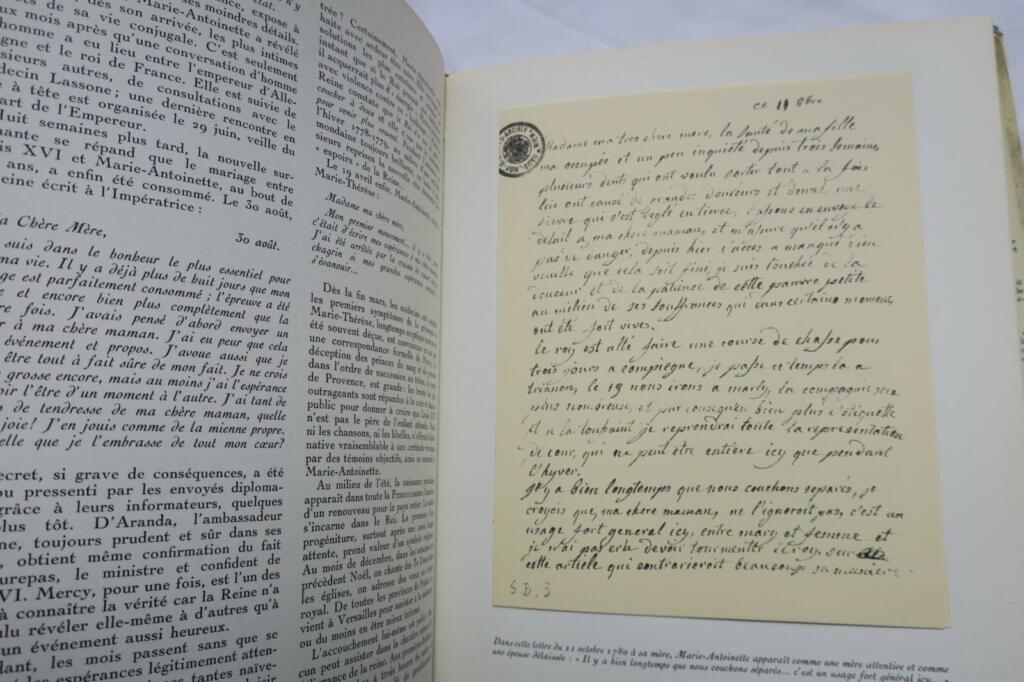 énage de France, expose à
état.
ses moindres détails,
dès son arrivée, les plus intimes
ts de sa vie conjugale. C'est seulement
ux mois après qu'une conversation d'homme
homme a eu lieu entre l'empereur d'Alle-
gne et le roi de France. Elle est suivie de
sieurs autres, de consultations avec le
decin Lassone; une dernière rencontre en
e à tête est organisée le 29 juin, veille du
art de l'Empereur.
Huit semaines plus tard, la nouvelle sur-
nante se répand que le mariage entre
is XVI et Marie-Antoinette, au bout de
ans, a enfin été consommé. Le 30 août,
eine écrit à l'Impératrice :
a Chère Mère,
30 août.
suis dans le bonheur le plus essentiel pour
ma vie. Il y a déjà plus de huit jours que mon
ge est parfaitement consommé; l'épreuve a été
e et encore bien plus complètement que la
re fois. J'avais pensé d'abord envoyer un
r à ma chère maman. J'ai eu peur que cela
événement et propos. J'avoue aussi que je
être tout à fait sûre de mon fait. Je ne crois
grosse encore, mais au moins j'ai l'espérance
oir l'être d'un moment à l'autre. J'ai tant de
s de tendresse de ma chère maman, quelle
joie! J'en jouis comme de la mienne propre.
elle que je l'embrasse de tout mon cœur?
ecret, si grave de conséquences, a été
ou pressenti par les envoyés diploma-
grâce à leurs informateurs, quelques
plus tôt. D'Aranda, l'ambassadeur
ne, toujours prudent et sûr dans ses
, obtient même confirmation du fait
urepas, le ministre et confident de
VI. Mercy, pour une fois, est l'un des
à connaître la vérité car la Reine n'a
ulu révéler elle-même à d'autres qu'à
un événement aussi heureux.
dant, les mois passent sans que se
les espérances légitimement atten-
es tantes naïve-
trée? Certainement,
haite avec ardeur
solutions les plus
instant que si le
il acquerrait plus d'
avec violence contre
Reine constate que
coucher à deux
pour venir plus souvent
l'hiver 1778-1779,
mondaine toujours brillante,
sieurs reprises la Reine
« espoirs » de la Reine.
Le 19 avril enfin, Marie-Antoinette
Marie-Thérèse :
Madame ma chère mère,
Mon premier mouvement...
c'était d'écrire mes espérances à ma
J'ai été arrêtée par la crainte de
chagrin si mes grandes espérances
s'évanouir...
Dès la fin mars, les médecins ont
les premiers symptômes de la grossesse
Marie-Thérèse, longtemps sceptique
été souvent déçue, est convaincue
une correspondance formelle de Mercy. La
déception des princes du sang et du
dans l'ordre de succession au trône, le comte
de Provence, est grande: les
outrageants sont répandus à la cour et
public pour donner à croire que Louis XVI
n'est pas le père de l'enfant attendu.
ni les chansons, ni les libelles, n'offrent
native vraisemblable à une certitude
par des témoins objectifs, amis ou
Marie-Antoinette.
Au milieu de l'été, la naissance
apparaît dans toute la France comme
d'un renouveau pour le pays entier.
s'incarne dans le Roi. La promesse
progéniture, surtout après une aussi
attente, prend valeur d'un symbole
Au mois de décembre, dans les semaines
précédent Noël, on chante des Te Deum
les églises, on adresse des vœux
royal. De toutes les provinces de France
vient à Versailles pour assister à la naissance
ou du moins en être mieux informé.
L'accouchement lui-même est public.
cun peut assister dans la chambre
frances de la reine. Aux premières
ce 11 8bre
Madame ma tres chere mere, la santé de ma fille
ma occupée et un peu inquiété depuis trois semaines,
plusieurs dents qui ont voulu sortir tout a la fois
lui ont causé de grandes douleurs et donné une
fievre qui s'est reglé en tierce, Lassone en envoye le
detail a, ma chere maman, et m'assure qu'il n'y a
pas de danger, depuis hier l'accès a manqué dieu
veuille que cela soit fini, je suis touchée de la
douceur et de la patience de cette pauvre petite
au milieu de ses souffrances qui dans certains moments
ont été fort vives.
le roy est allé faire une course de chasse pour
trois jours a compiegne, je passe ce temps la a
trianon, le 19 nous irons a marly, la compagnie sera
plus nombreuse, et par consequent bien plus d'etiquette
et a la toussaint je reprendrai toute la representation
de cour, qui ne peut être entiere icy que pendant
l'hyver.
Il y a bien longtemps que nous couchons separés, je
croyois que, ma chere maman, ne l'ignoroit pas, c'est un
usage fort general icy, entre mary et femme et
je n'ai pas cru devoir tourmenter le roy, sur
cette article qui contrarieroit beaucoup sa maniere
S B. 3
Dans cette lettre du 11 octobre 1780 à sa mère, Marie-Antoinette apparaît comme une mère attentive et comme
une épouse délaissée : « Il y a bien longtemps que nous couchons séparés... c'est un usage fort général icy... »